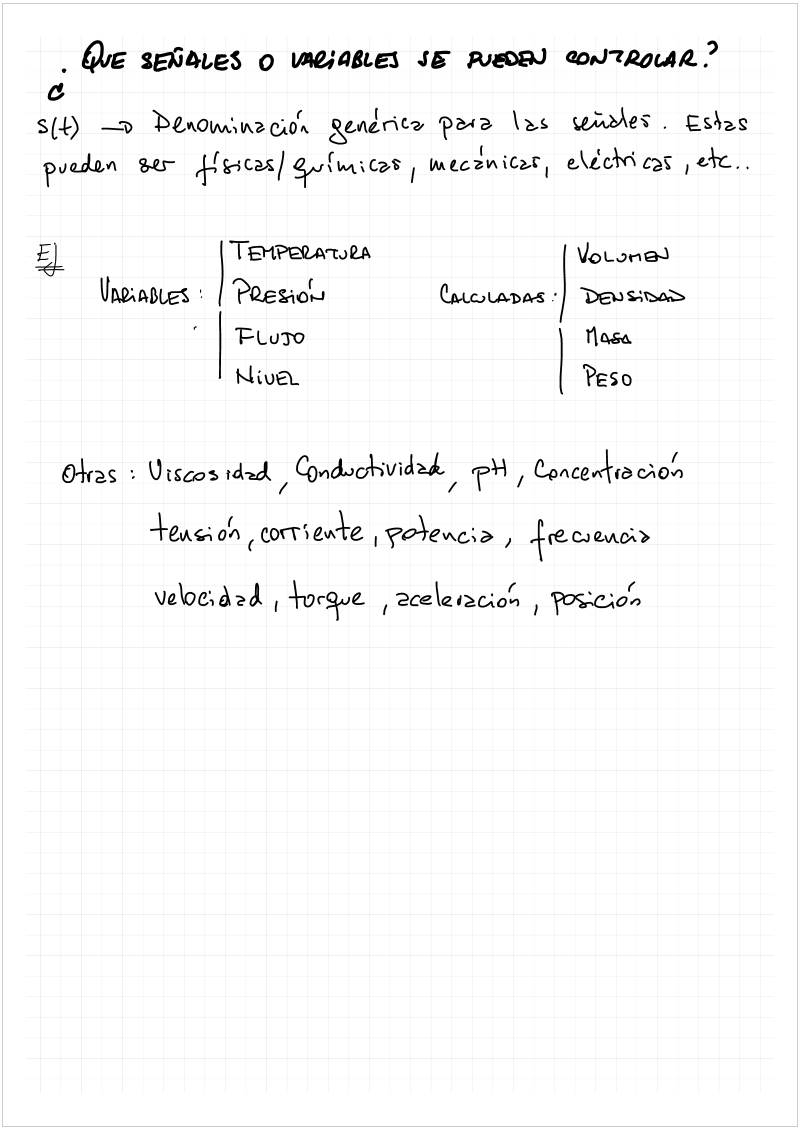 ¿QUE SEÑALES O VARIABLES SE PUEDEN CONTROLAR?
s(t) → Denominación genérica para las señales. Estas
pueden ser físicas/químicas, mecánicas, eléctricas, etc..
Ej
VARIABLES: TEMPERATURA
PRESIÓN
FLUJO
NIVEL
CALCULADAS: VOLUMEN
DENSIDAD
MASA
PESO
Otras: Viscosidad, Conductividad, pH, Concentración
tensión, corriente, potencia, frecuencia
velocidad, torque, aceleración, posición